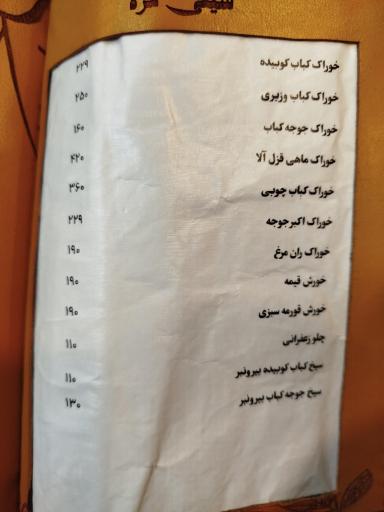 خوراک کباب کوبیده ۲۲۹
خوراک کباب وزیری ۲۵۰
خوراک جوجه کباب ۱۶۰
خوراک ماهی قزل آلا ۴۲۰
خوراک کباب چوبی ۳۶۰
خوراک اکبر جوجه ۲۲۹
خوراک ران مرغ ۱۹۰
خورش قیمه ۱۹۰
خورش قورمه سبزی ۱۹۰
چلو زعفرانی ۱۱۰
سیخ کباب کوبیده بیرونبر ۱۱۰
سیخ جوجه کباب بیرونبر ۱۳۰